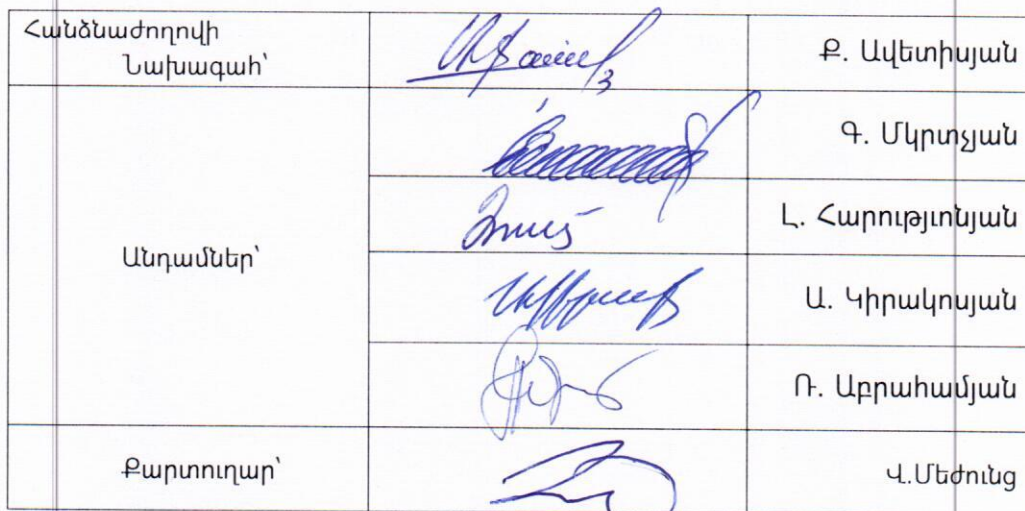 Հանձնաժողովի
Նախագահ՝
Ք. Ավետիսյան
Գ. Մկրտչյան
Անդամներ՝
Լ. Հարությունյան
Ա. Կիրակոսյան
Ռ. Աբրահամյան
Քարտուղար՝
Վ.Մեժունց